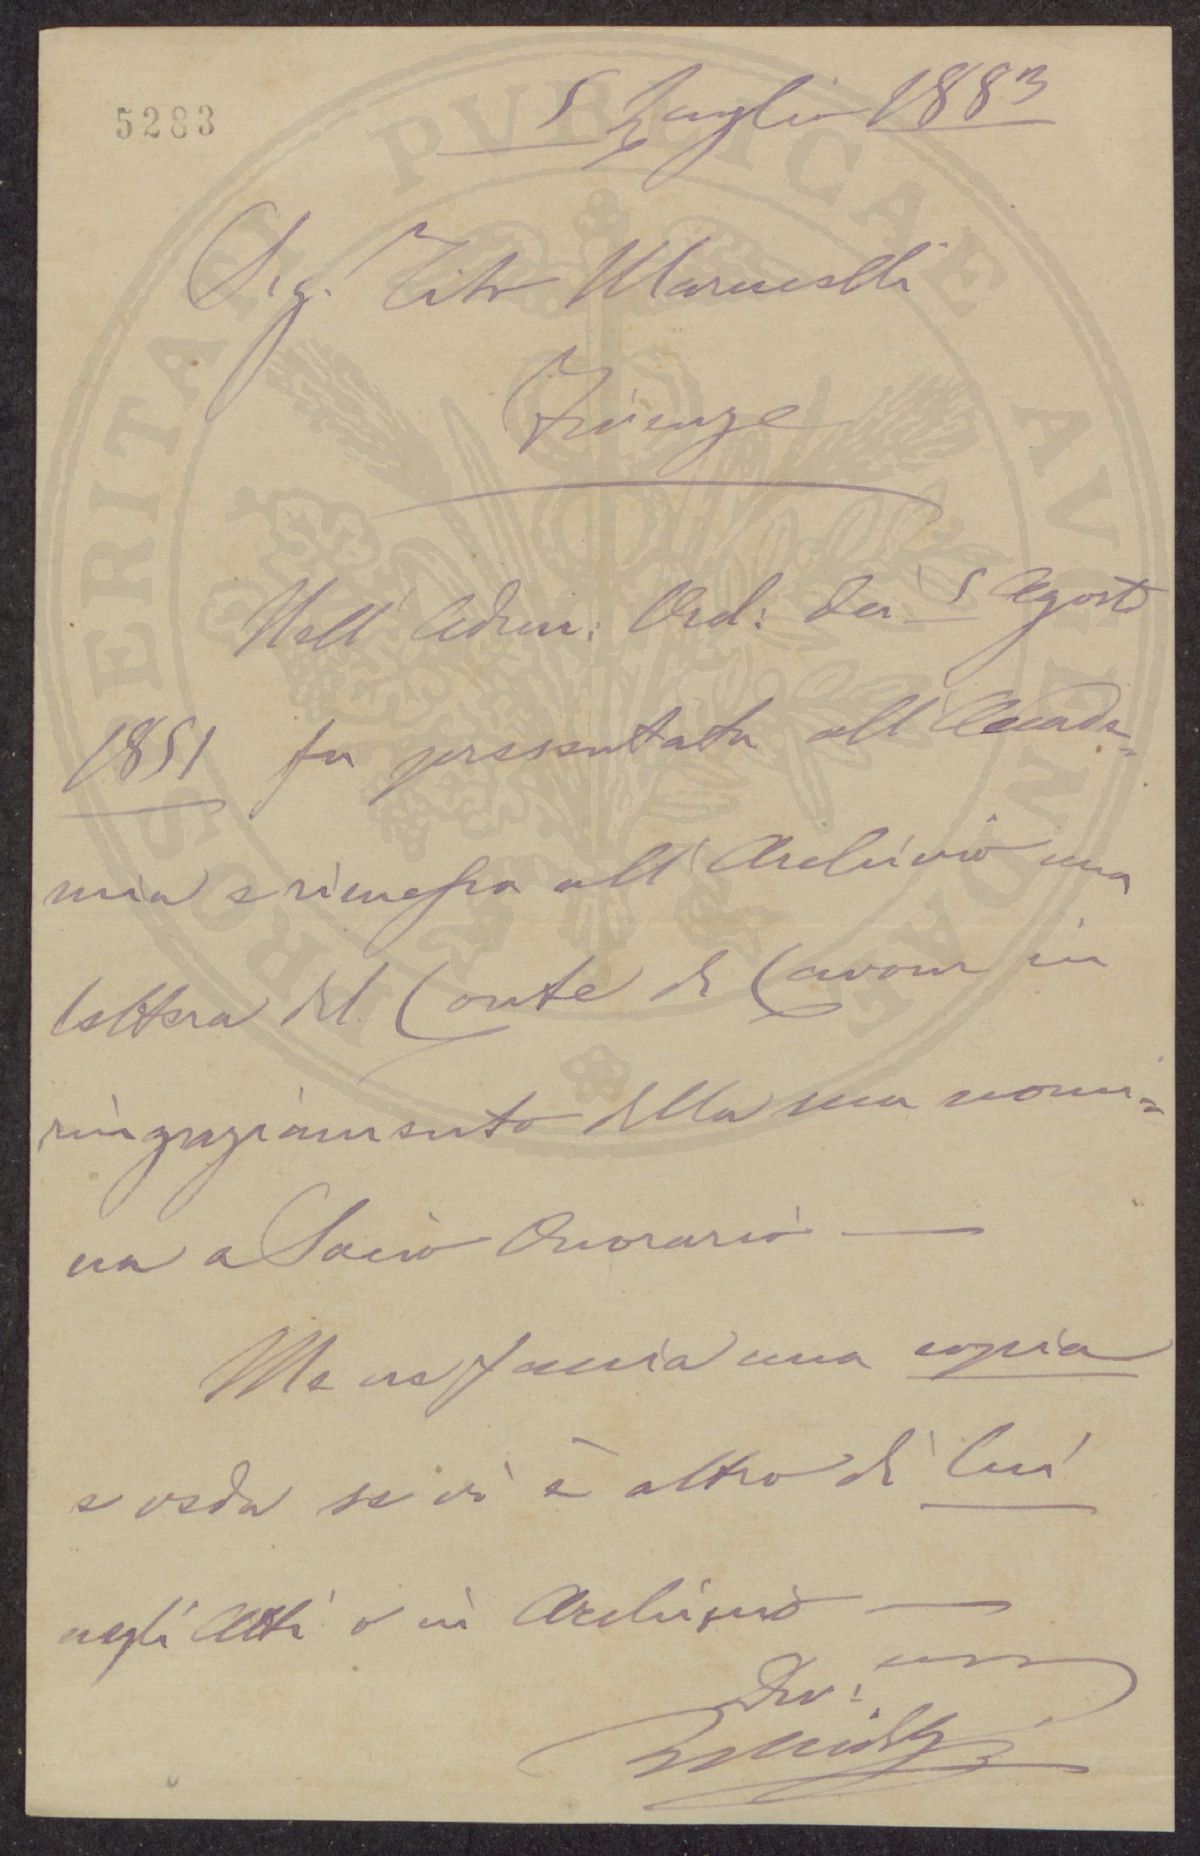 5283
5 Luglio 1883
Sig. Tito Marucelli
Firenze
Nell' Adun: Ord: dei 5 Agosto
1851 fu presentata all' Accade=
mia e rimessa all' Archivio una
lettera del Conte di Cavour in
ringraziamento della sua nomi=
na a Socio Onorario —
Me ne faccia una copia
e veda se vi è altro di lui
negli Atti o in Archivio —
Dev:
PROSPERITATI PVBLICAE AVGENDAE